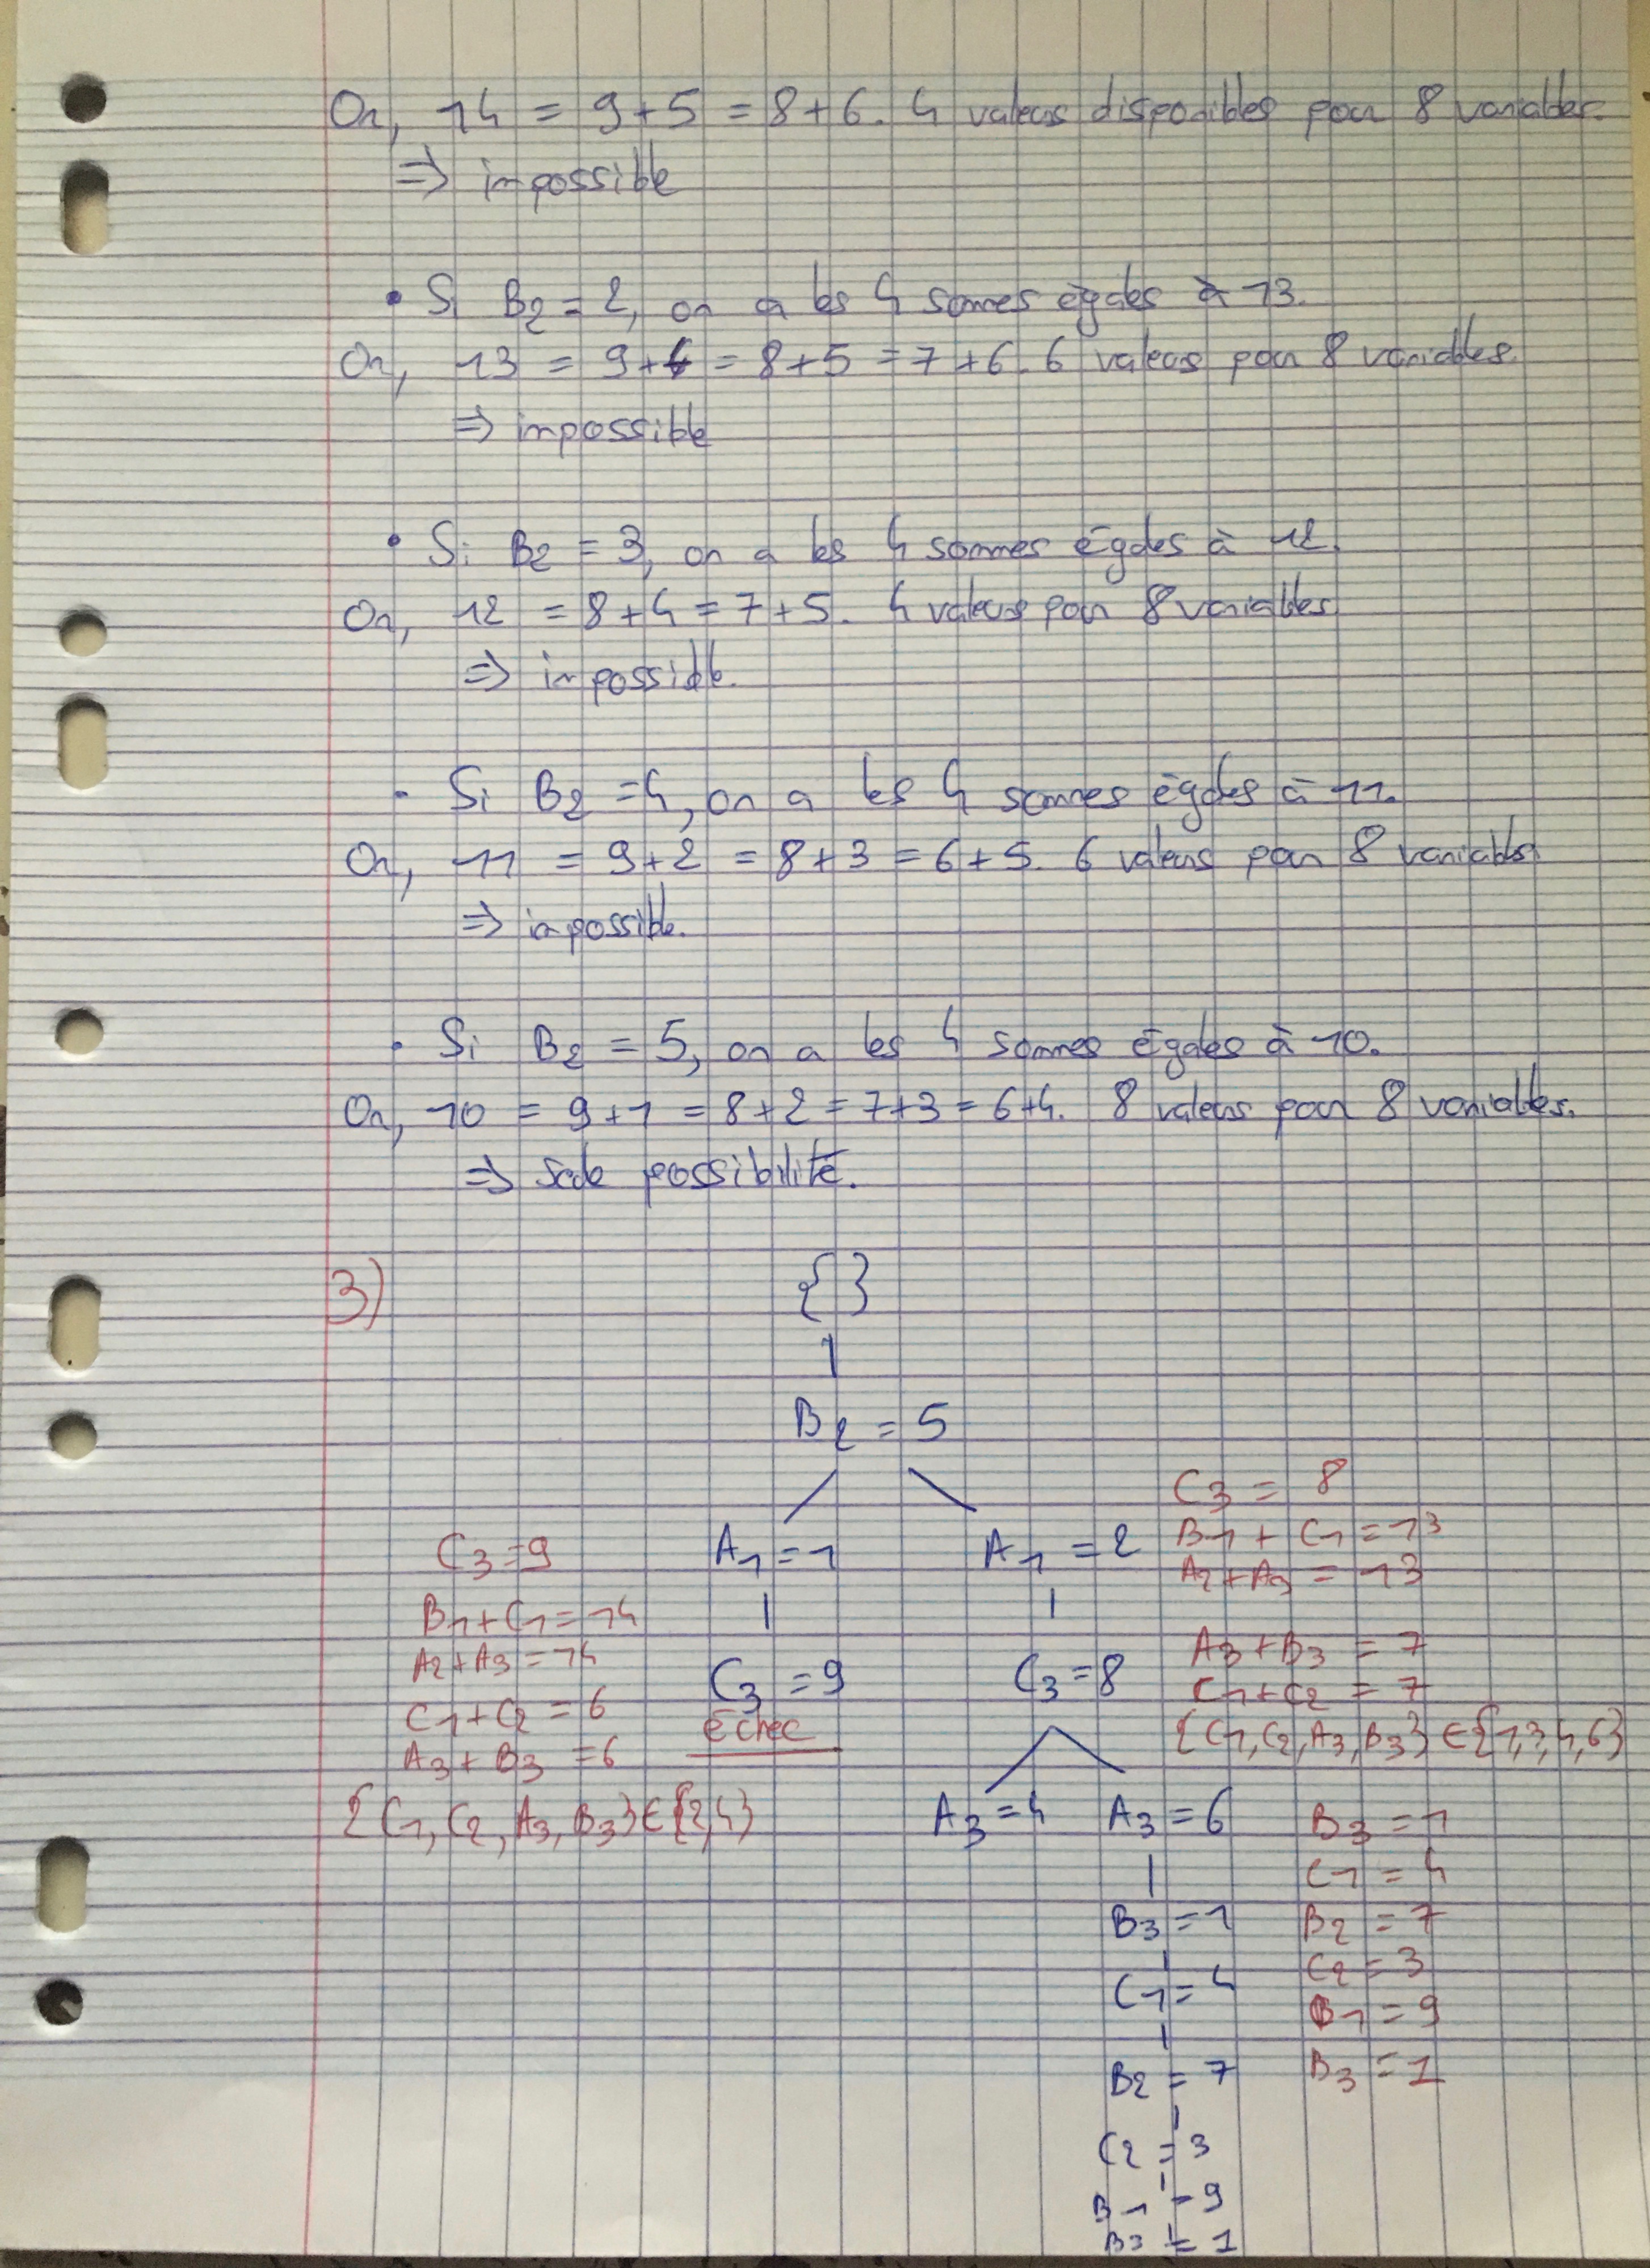 Or, 14 = 9+5 = 8+6. 4 valeurs disponibles pour 8 variables.
=> impossible
• Si B2 = 2, on a les 4 sommes égales à 13.
Or, 13 = 9+4 = 8+5 = 7+6. 6 valeurs pour 8 variables.
=> impossible
• Si B2 = 3, on a les 4 sommes égales à 12.
Or, 12 = 8+4 = 7+5. 4 valeurs pour 8 variables
=> impossible.
• Si B2 = 4, on a les 4 sommes égales à 11.
Or, 11 = 9+2 = 8+3 = 6+5. 6 valeurs pour 8 variables
=> impossible.
• Si B2 = 5, on a les 4 sommes égales à 10.
Or, 10 = 9+1 = 8+2 = 7+3 = 6+4. 8 valeurs pour 8 variables.
=> Seule possibilité.
3) { }
B2 = 5
A1 = 1
C3 = 9
échec
C3 = 9
B1 + C1 = 14
A2 + A3 = 14
C1 + C2 = 6
A3 + B3 = 6
{C1, C2, A3, B3} ∈ {2,4}
A1 = 2
C3 = 8
A3 = 4
A3 = 6
B3 = 1
C1 = 4
B2 = 7
C2 = 3
B1 = 9
B3 = 1
C3 = 8
B1 + C1 = 13
A2 + A3 = 13
A3 + B3 = 7
C1 + C2 = 7
{C1, C2, A3, B3} ∈ {1,3,4,6}
B3 = 1
C1 = 4
B2 = 7
C2 = 3
B1 = 9
B3 = 1